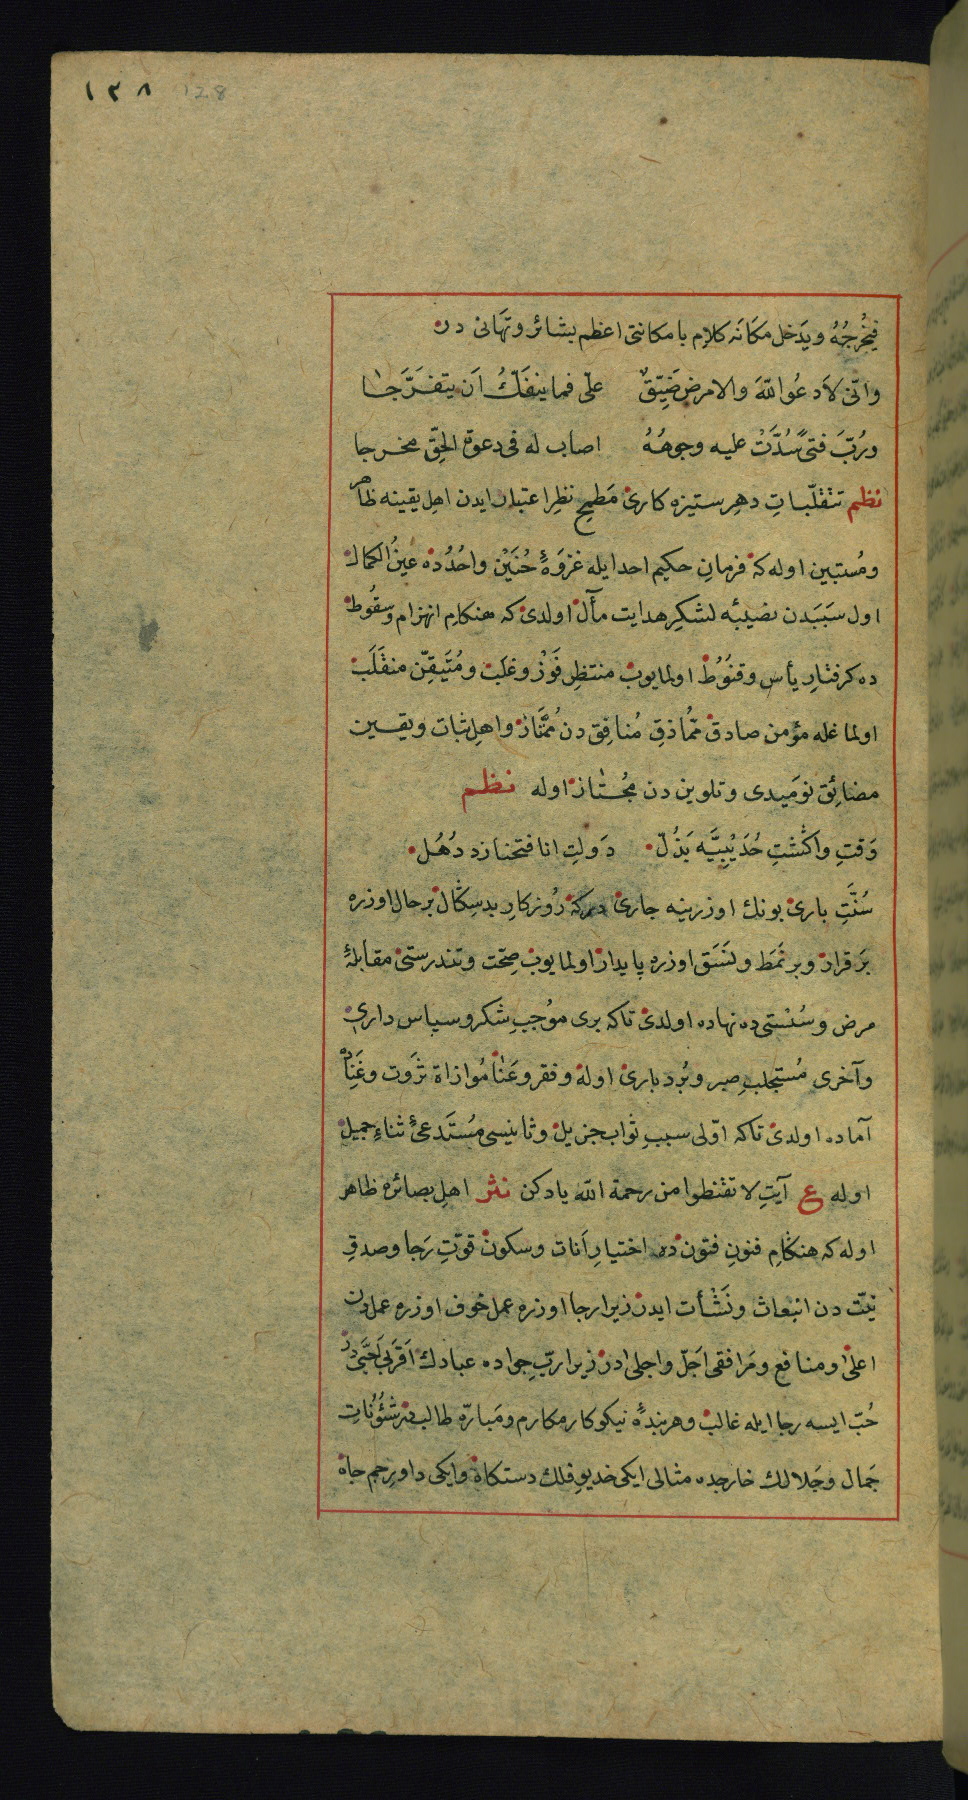 ١٢٨ 128
فيُخْرِجُهُ ويَدخل مكَانَه كلام بامكانتى اعظم بشائر وتهَانى در
وانّى لاَدعُوا للّهَ والامرضَيِّقٌ علىّ فما ينفَكُّ اَن يتفَرَّجَا
ورُبَّ فتىً سُدَّتْ عليه وجوهُهُ اصاب له فى دعوة الحقّ مخرجا
نظم تقلّبات دهرِ ستيزه كارى مَطمح نظرِ اعتبار ايدن اهل يقينه ظاهر
ومُستبين اوله كه فرمانِ حكيم احد ايله غزوۀ حُنَيْن واُحُدْده عينُ الكمال
اول سَبَبدن نصيبۀ لشكرِ هدايت مآل اولدى كه هنكام انهزام وسقُوط
ده كرفتارِ يأس وقنُوُط اولمايوب منتظرِ فَوْز وغلبَت ومُتَيقِّن منقَلَب
اولماغله مؤمن صادق مُماذقِ مُنافِق دن مُمْتَاز واهل ثبات ويقين
مضائِق نوميدى وتلوين دن مُجتاز اوله نظم
وَقتِ واكَشتِ حُدَيْبِيَّه بَذُلّ دَولتِ انا فتحنا زد دُهُل
سُنَّتِ بارى بونك اوزرينه جارى در كه رُوزكارِ بدسكال برحال اوزره
برَقرار وبر نَمَط ونَسَق اوزره پايدار اولمايوب صِحّت وتندرستى مقابلۀ
مرض وسُسْتى ده نهاده اولدى تاكه برى موُجبِ شكر وسپاس دارى
وآخرى مُستجلبِ صبر وبُردبارى اوله وفقر وعَنَا مُوازاة ثرَوت وغَنَاده
آماده اولدى تاكه اوّلى سببِ ثواب جزيل وثانيسى مُستَدعىٔ ثناءِ جميل
اوله ع آيتِ لا تقنطوا من رحمة الله ياد كن نثر اهل بصائره ظاهر
اوله كه هنكامِ فنونِ فتون ده اختيارِ اَنات وسكون قوّتِ رَجا وصدقِ
نيّت دن انبعاث ونَشْأت ايدر زيرا رجا اوزره عمل خوف اوزره عملدن
اعلى ومنافع ومَرافقى اَجَلّ واجلى در زيرا ربِّ جواده عبادك اَقرَبى اَحَبّى در
حُبّ ايسه رجا ايله غالب وهر بندۀ نيكوكار مكارم ومَبارّه طالب در شئوُناتِ
جَمال وجَلالك خارجده مثالى ايكى خديو فلك دستكاه وايكى داورِ جم جاه